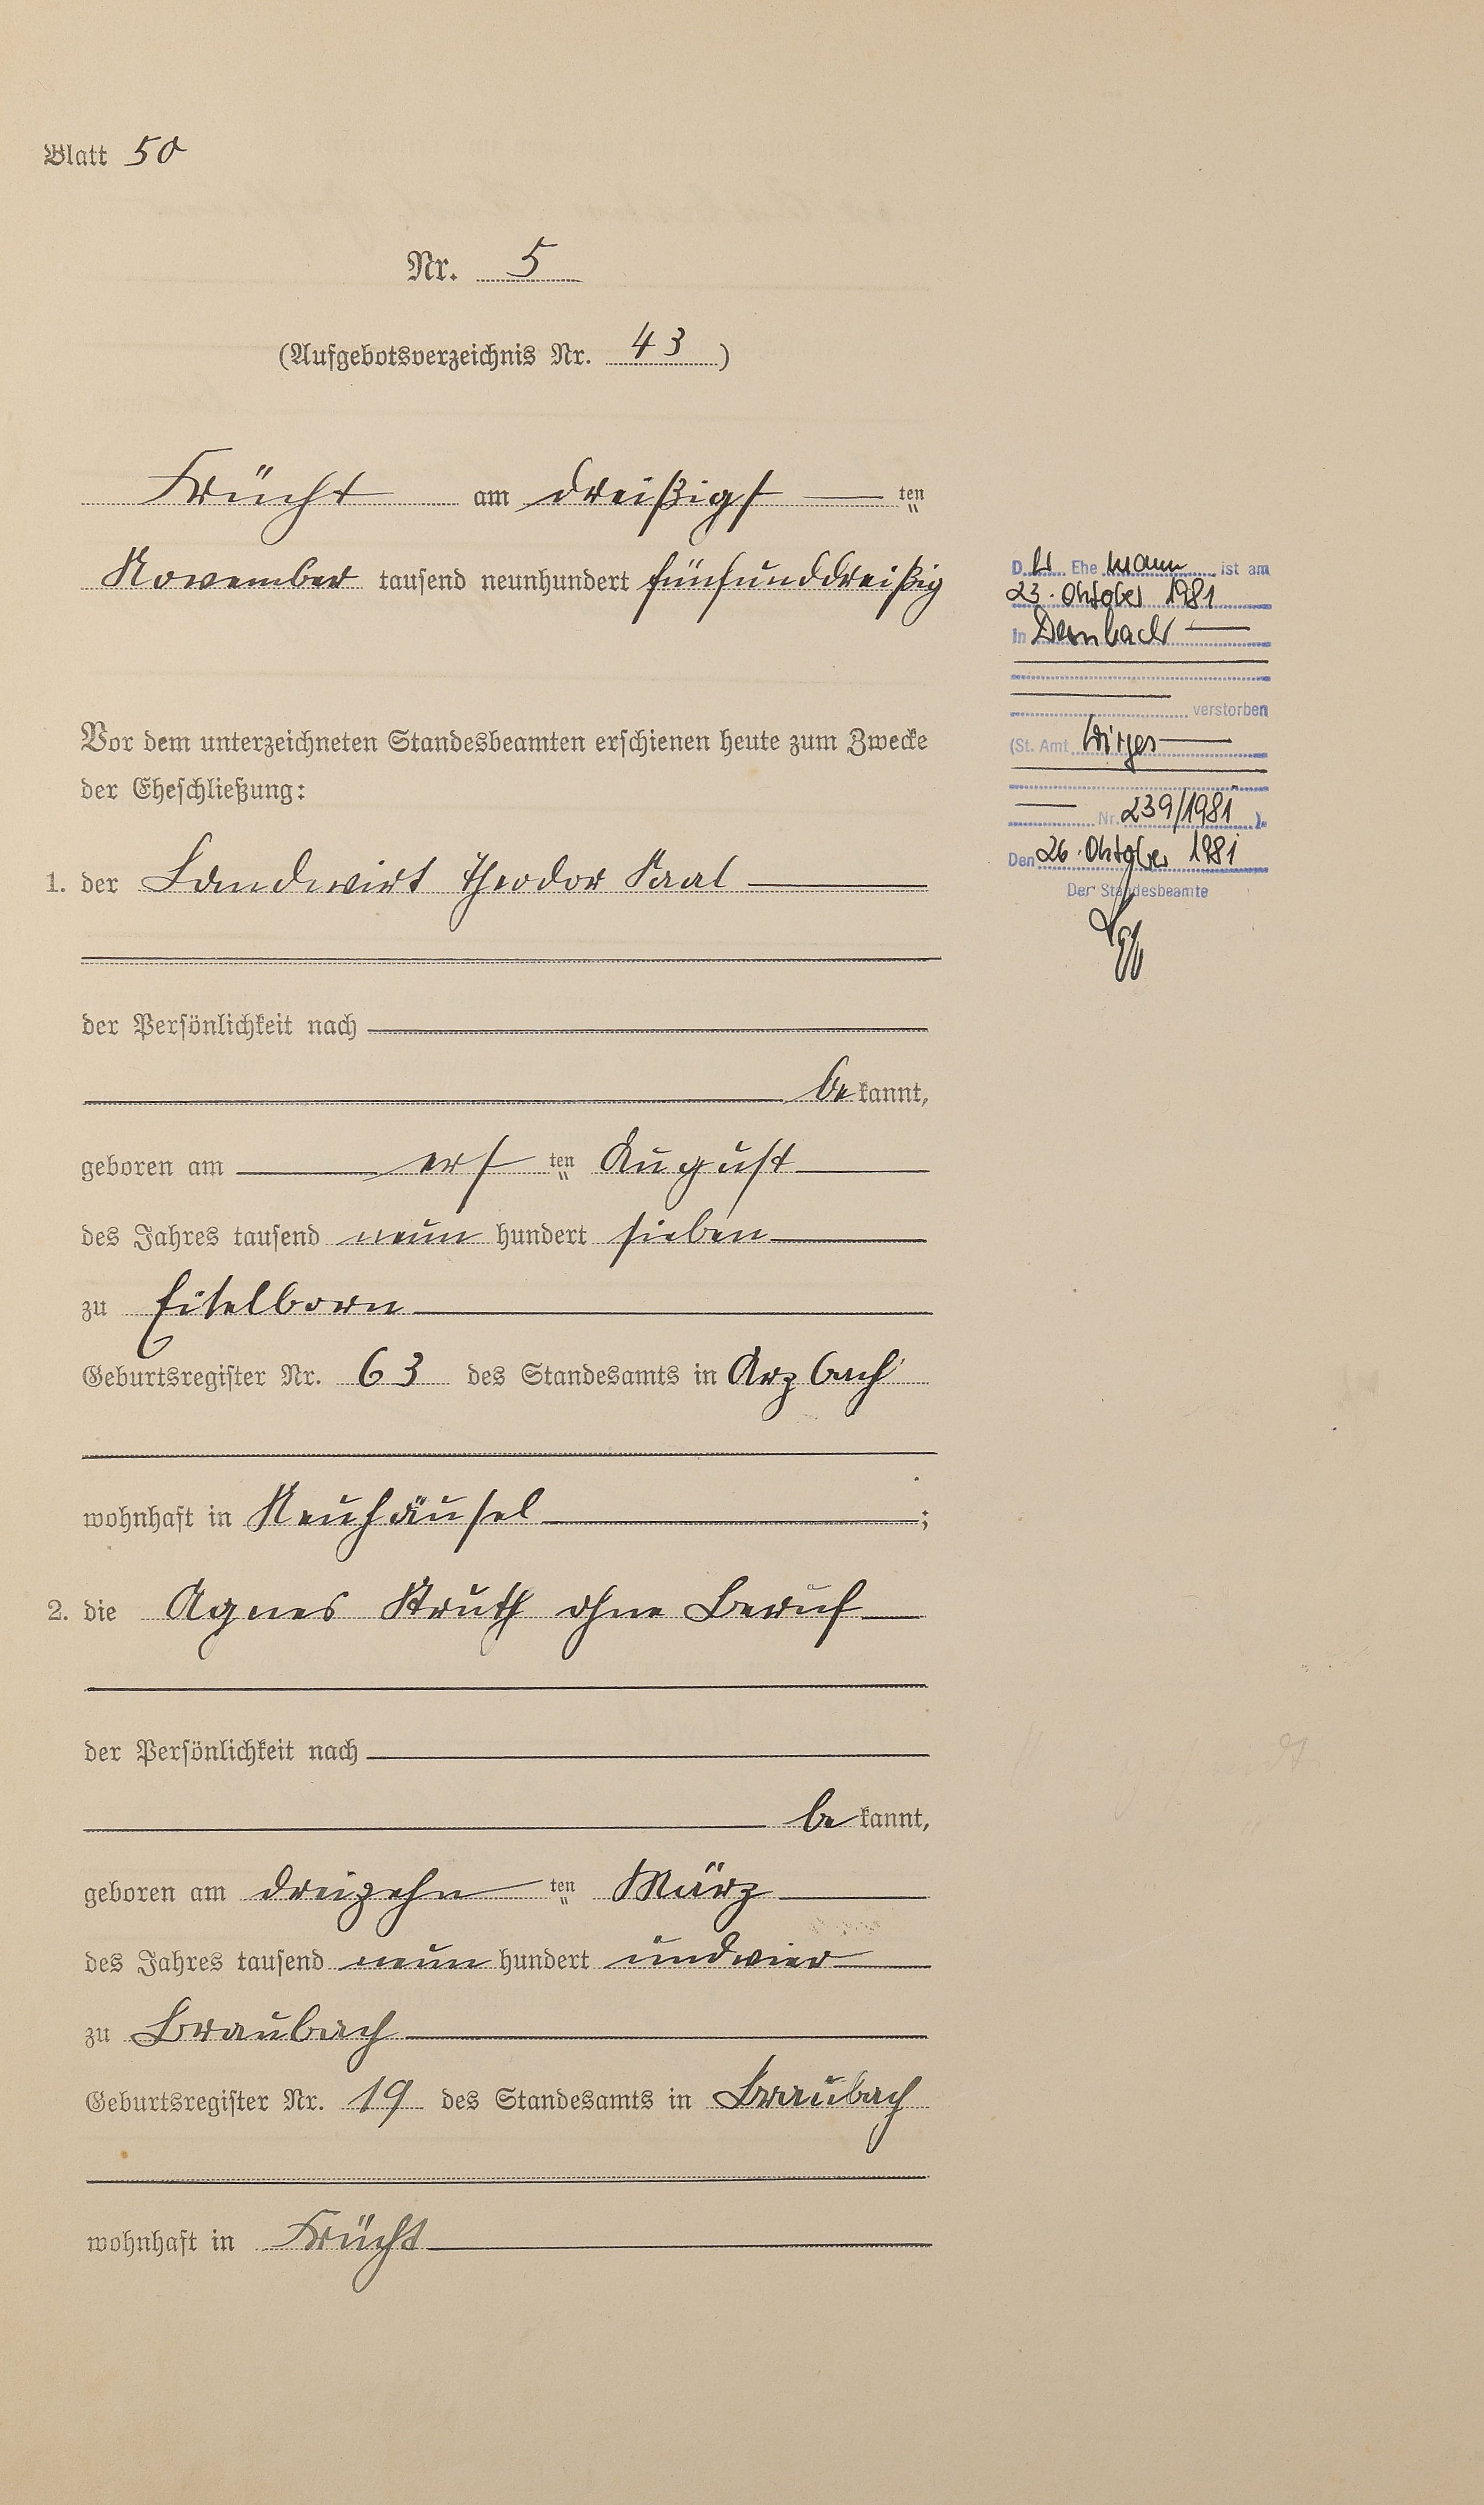 Blatt 50
Nr. 5
(Aufgebotsverzeichnis Nr. 43)
Frücht am dreißigsten
November tausend neunhundert fünfunddreißig
Vor dem unterzeichneten Standesbeamten erschienen heute zum Zwecke
der Eheschließung:
1. der Landwirt Theodor Saal
der Persönlichkeit nach
bekannt,
geboren am ersten August
des Jahres tausend neun hundert sieben
zu Eitelborn
Geburtsregister Nr. 63 des Standesamts in Arzbach
wohnhaft in Neuhäusel ;
2. die Agnes Struth ohne Beruf
der Persönlichkeit nach
bekannt,
geboren am dreizehnten März
des Jahres tausend neun hundert undvier
zu Braubach
Geburtsregister Nr. 19 des Standesamts in Braubach
wohnhaft in Frücht
Der Ehemann ist am
23. Oktober 1981
in Dernbach
verstorben
(St. Amt Wirges
Nr. 239/1981).
Den 26. Oktober 1981
Der Standesbeamte